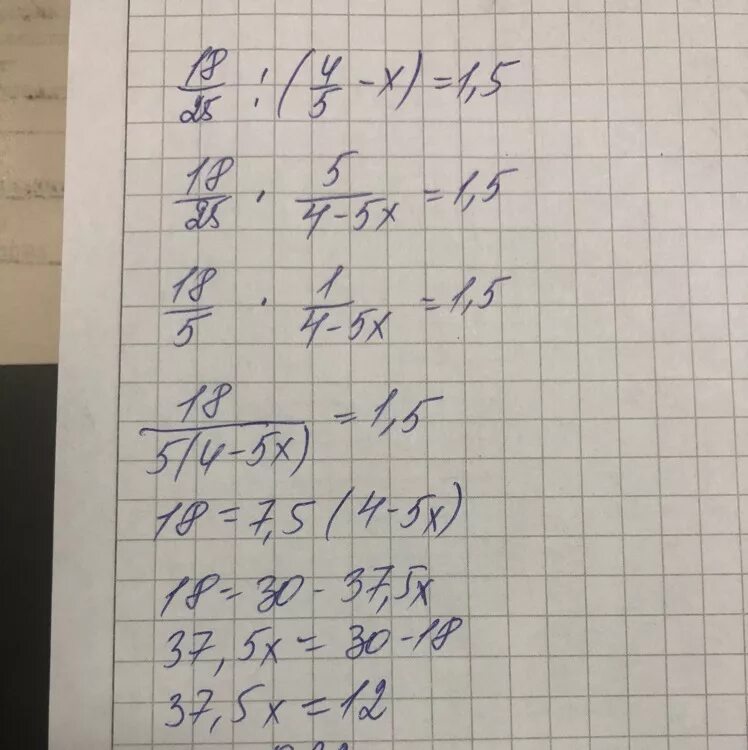 18/25 : (4/5 - x) = 1,5
18/25 · 5/(4-5x) = 1,5
18/5 · 1/(4-5x) = 1,5
18/(5(4-5x)) = 1,5
18 = 7,5 (4-5x)
18 = 30 - 37,5x
37,5x = 30-18
37,5x = 12